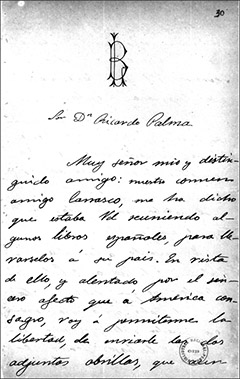 30
Sor Dn Ricardo Palma
Muy señor mio y distin-
guido amigo: nuestro comun
amigo Carrasco, me ha dicho
que estaba Vd reuniendo al-
gunos libros españoles, para lle-
varselos á su pais. En vista
de ello, y alentado por el sin-
cero afecto que á América con-
sagro, voy á permitirme la
libertad, de enviarle las dos
adjuntas obrillas, que